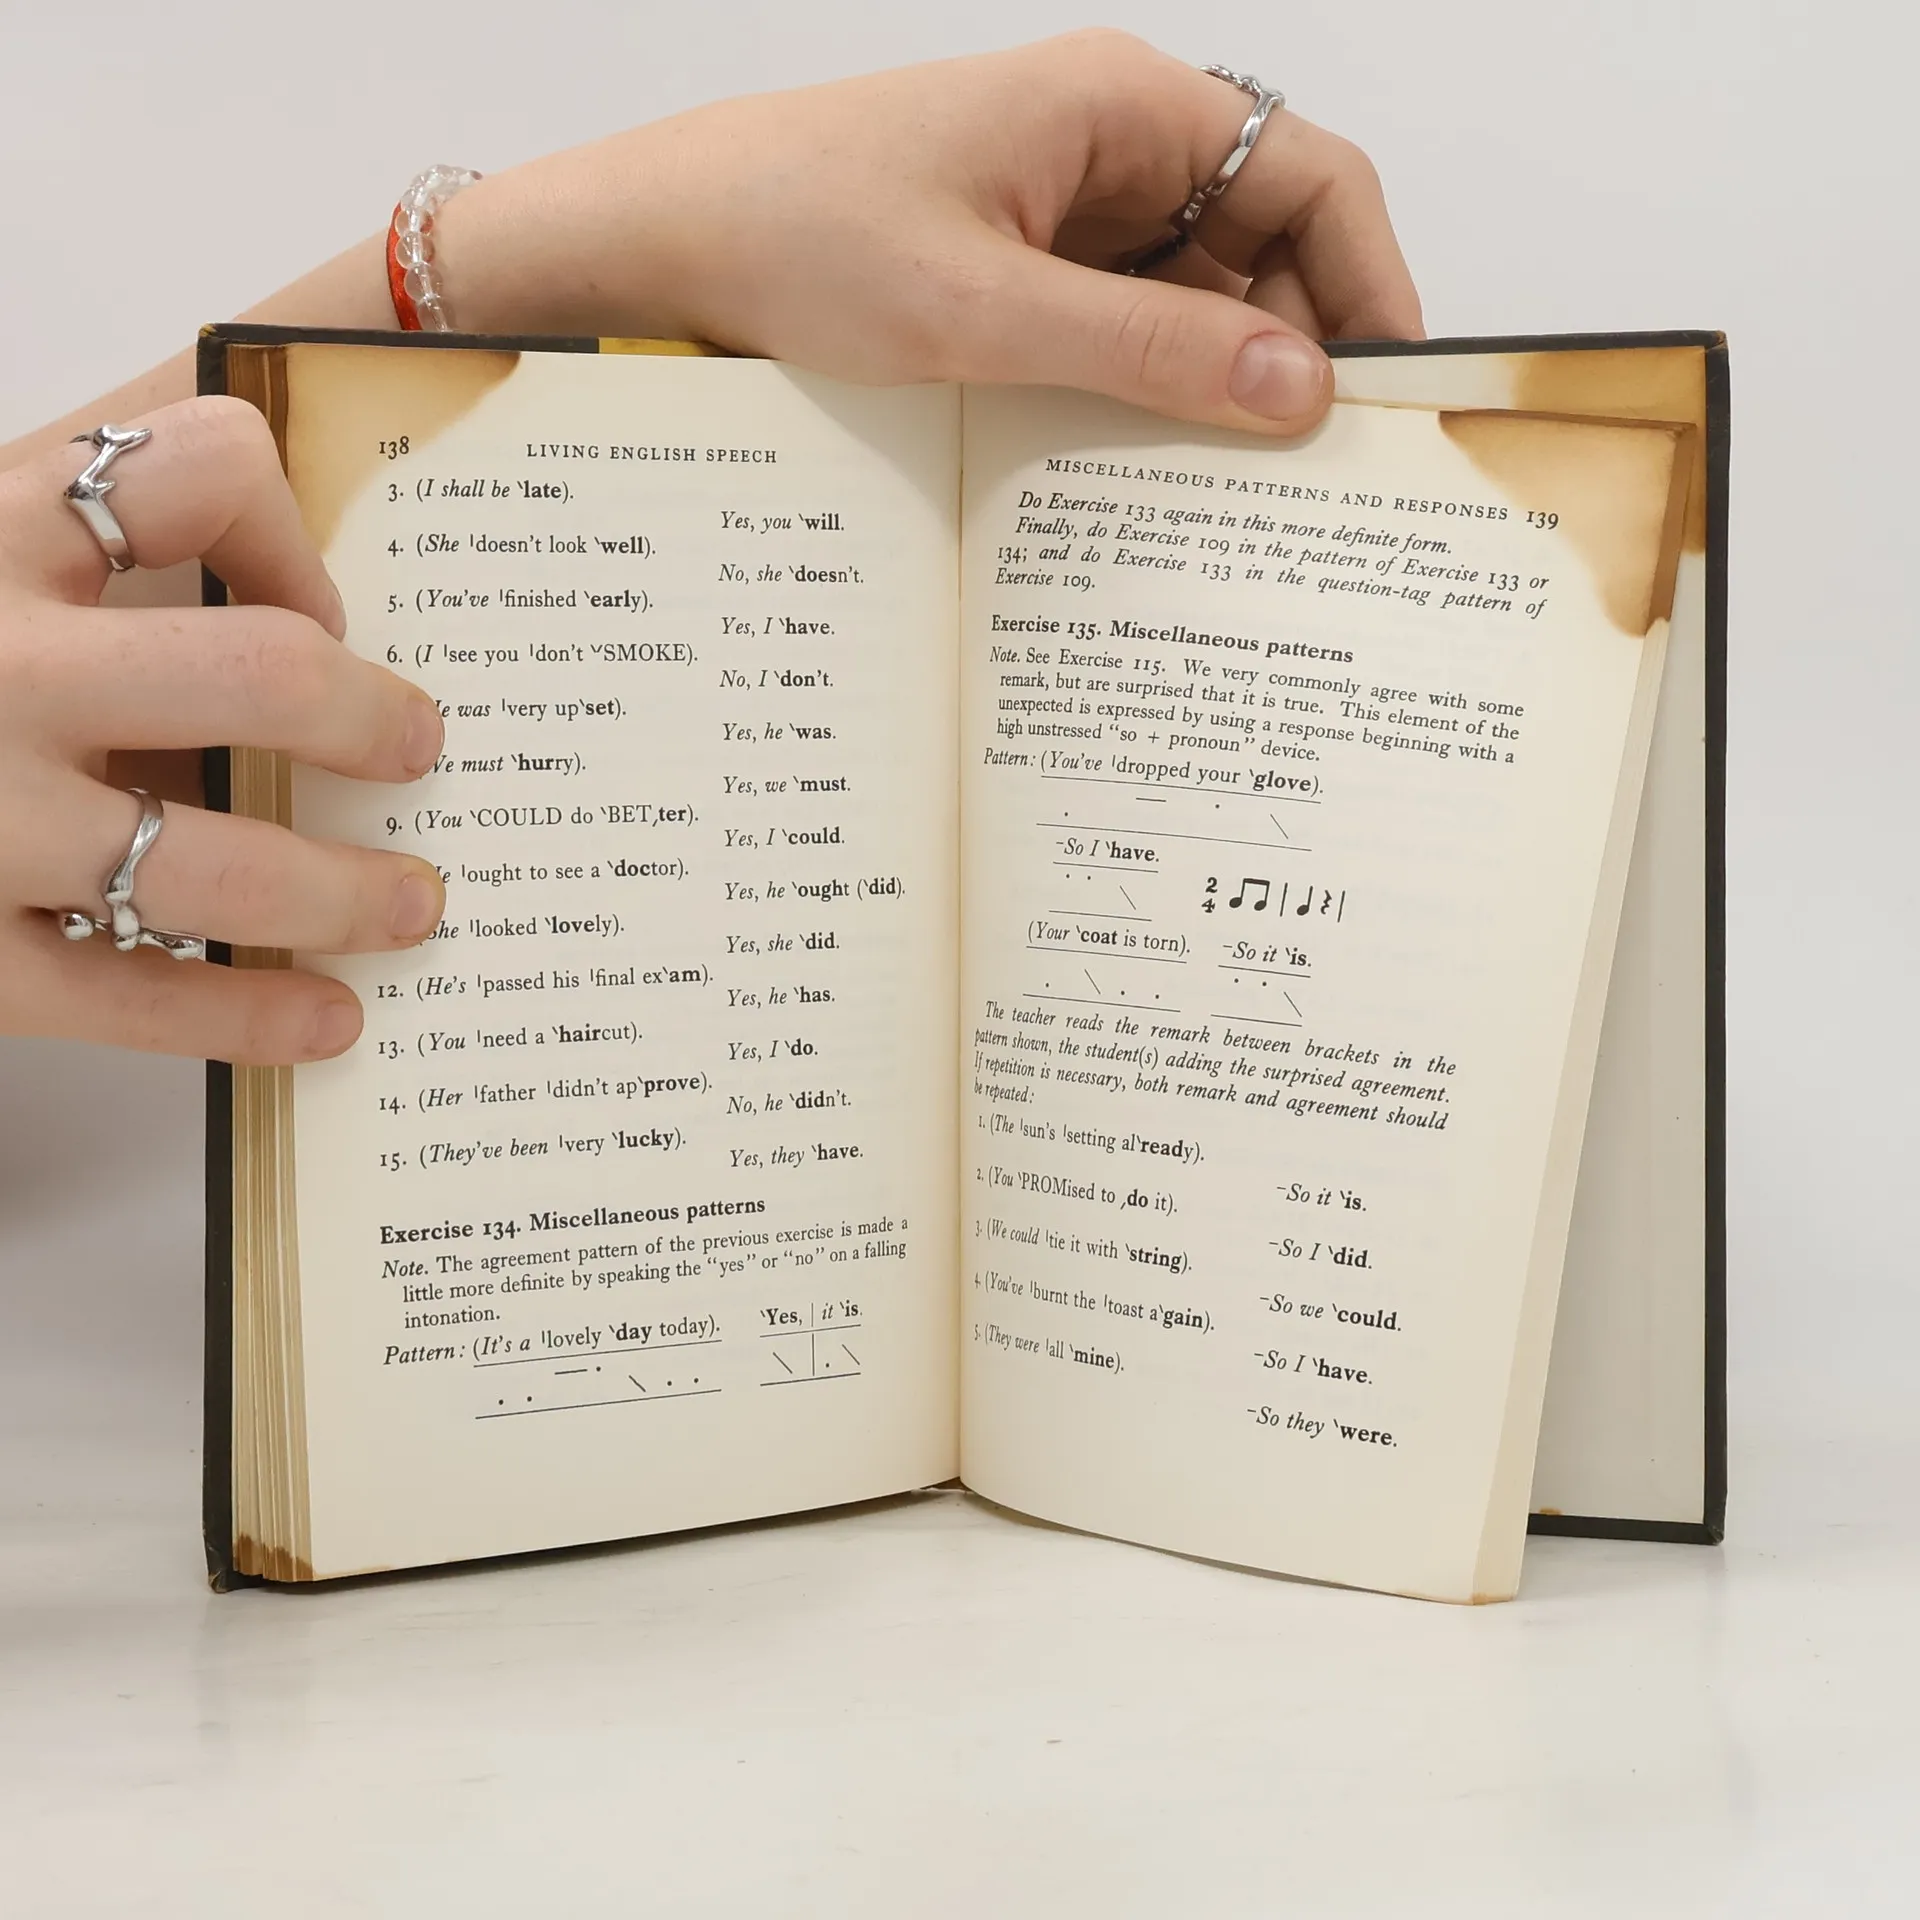 138
LIVING ENGLISH SPEECH
3. (I shall be ˋlate).
Yes, you ˋwill.
4. (She ˈdoesn't look ˋwell).
No, she ˋdoesn't.
5. (You've ˈfinished ˋearly).
Yes, I ˋhave.
6. (I ˈsee you ˈdon't ˅SMOKE).
No, I ˋdon't.
was ˈvery upˋset).
Yes, he ˋwas.
must ˋhurry).
Yes, we ˋmust.
9. (You ˋCOULD do ˋBETˏter).
Yes, I ˋcould.
ˈought to see a ˋdoctor).
Yes, he ˋought (ˋdid).
ˈlooked ˋlovely).
Yes, she ˋdid.
12. (He's ˈpassed his ˈfinal exˋam).
Yes, he ˋhas.
13. (You ˈneed a ˋhaircut).
Yes, I ˋdo.
14. (Her ˈfather ˈdidn't apˋprove).
No, he ˋdidn't.
15. (They've been ˈvery ˋlucky).
Yes, they ˋhave.
Exercise 134. Miscellaneous patterns
Note. The agreement pattern of the previous exercise is made a
little more definite by speaking the “yes” or “no” on a falling
intonation.
Pattern: (It's a ˈlovely ˋday today). ˋYes, | it ˋis.
MISCELLANEOUS PATTERNS AND RESPONSES 139
Do Exercise 133 again in this more definite form.
Finally, do Exercise 109 in the pattern of Exercise 133 or
134; and do Exercise 133 in the question-tag pattern of
Exercise 109.
Exercise 135. Miscellaneous patterns
Note. See Exercise 115. We very commonly agree with some
remark, but are surprised that it is true. This element of the
unexpected is expressed by using a response beginning with a
high unstressed “so + pronoun” device.
Pattern: (You've ˈdropped your ˋglove).
ˉSo I ˋhave.
2
4
(Your ˋcoat is torn). ˉSo it ˋis.
The teacher reads the remark between brackets in the
pattern shown, the student(s) adding the surprised agreement.
If repetition is necessary, both remark and agreement should
be repeated:
1. (The ˈsun's ˈsetting alˋready).
ˉSo it ˋis.
2. (You ˋPROMised to ˏdo it).
ˉSo I ˋdid.
3. (We could ˈtie it with ˋstring).
ˉSo we ˋcould.
4. (You've ˈburnt the ˈtoast aˋgain).
ˉSo I ˋhave.
5. (They were ˈall ˋmine).
ˉSo they ˋwere.